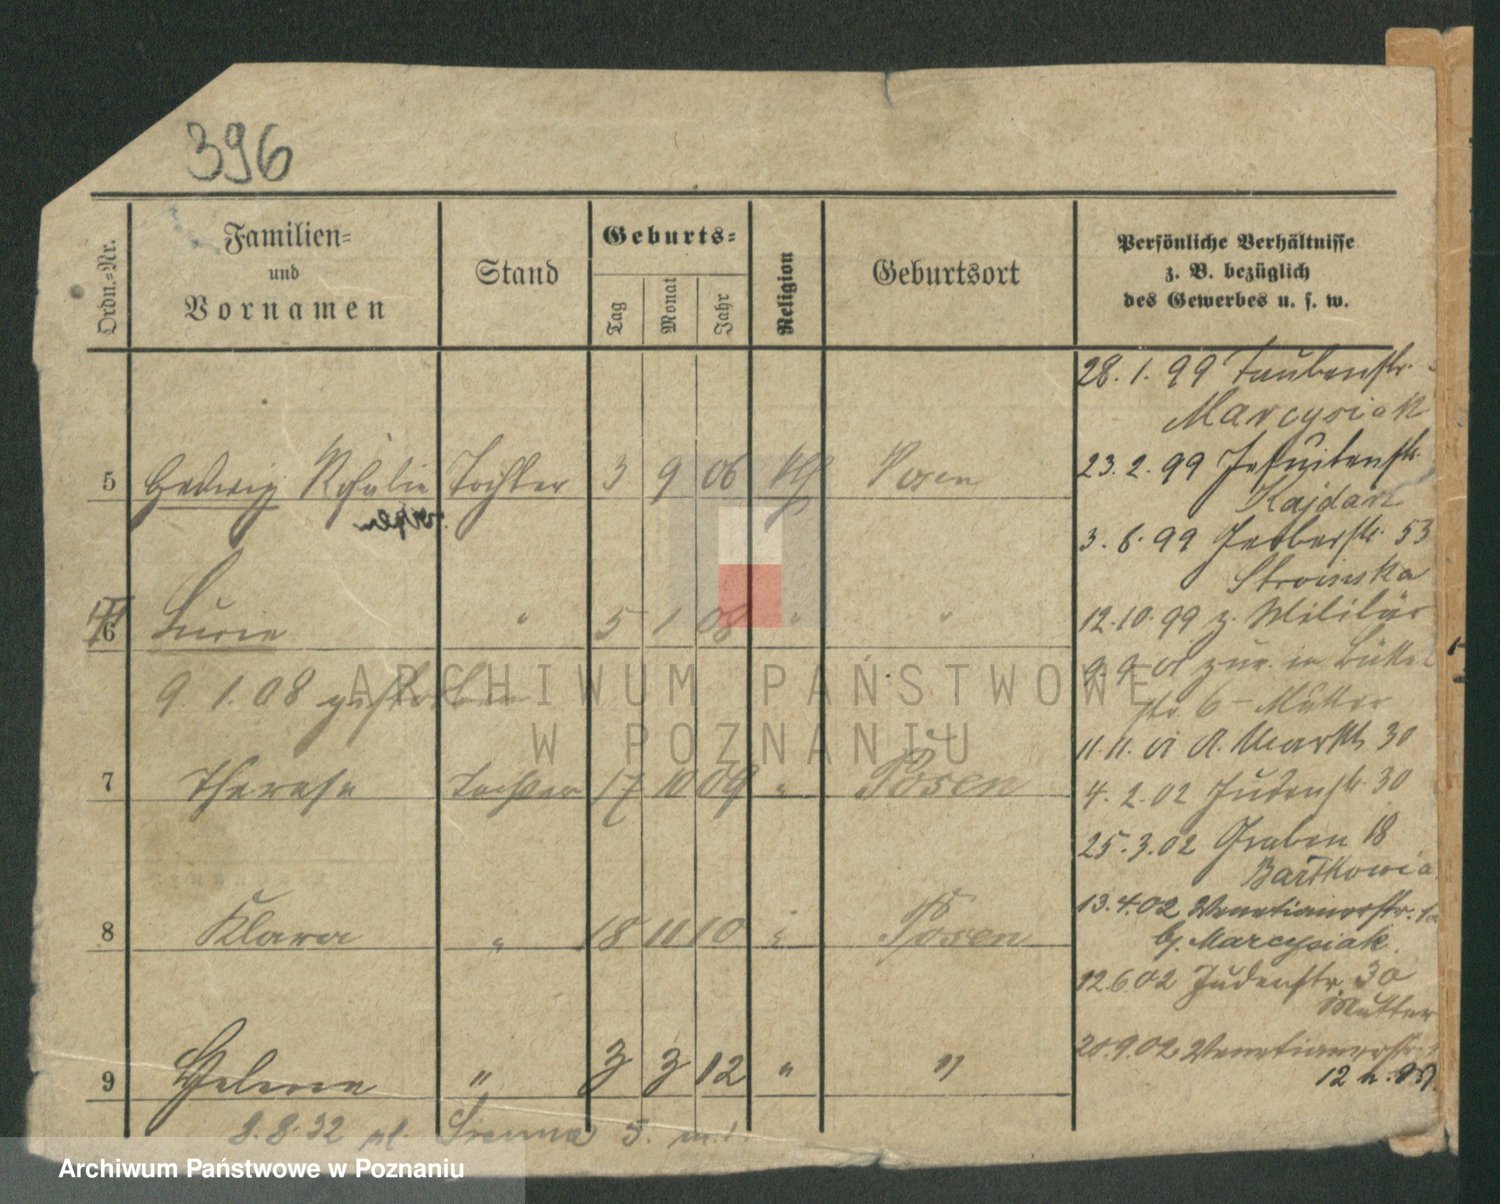 396
Ordn.-Nr.
Familien-
und
Vornamen
Stand
Geburts-
Tag
Monat
Jahr
Religion
Geburtsort
Persönliche Verhältnisse
z. B. bezüglich
des Gewerbes u. s. w.
28. 1. 99 Taubenstr.
Marcysiak
5 Hedwig Tochter 3 9 06 kth Posen
23. 2. 99 Jesuitenstr.
Kajdan
3. 6. 99 Gerberstr. 53
Stroinska
6 Lucie " 5 1 08 " "
12. 10. 99 z. Militär
9. 1. 08 gestorben
9. 9. 01 zur. in Büttel
str. 6 – Mutter
11. 11. 01 A. Markt 30
7 Therese Tochter 17 10 09 " Posen
4. 2. 02 Judenstr. 30
25. 3. 02 Graben 18
Bartkowia
8 Klara " 18 11 10 " Posen
13. 4. 02 Venetianerstr.
b/. Marcysiak.
12. 6 02 Judenstr. 30
Mutter
20. 9. 02 Venetianerstr.
9 Helene " 3 3 12 " "
8. 8. 32 pl.
ARCHIWUM PAŃSTWOWE
W POZNANIU
Archiwum Państwowe w Poznaniu